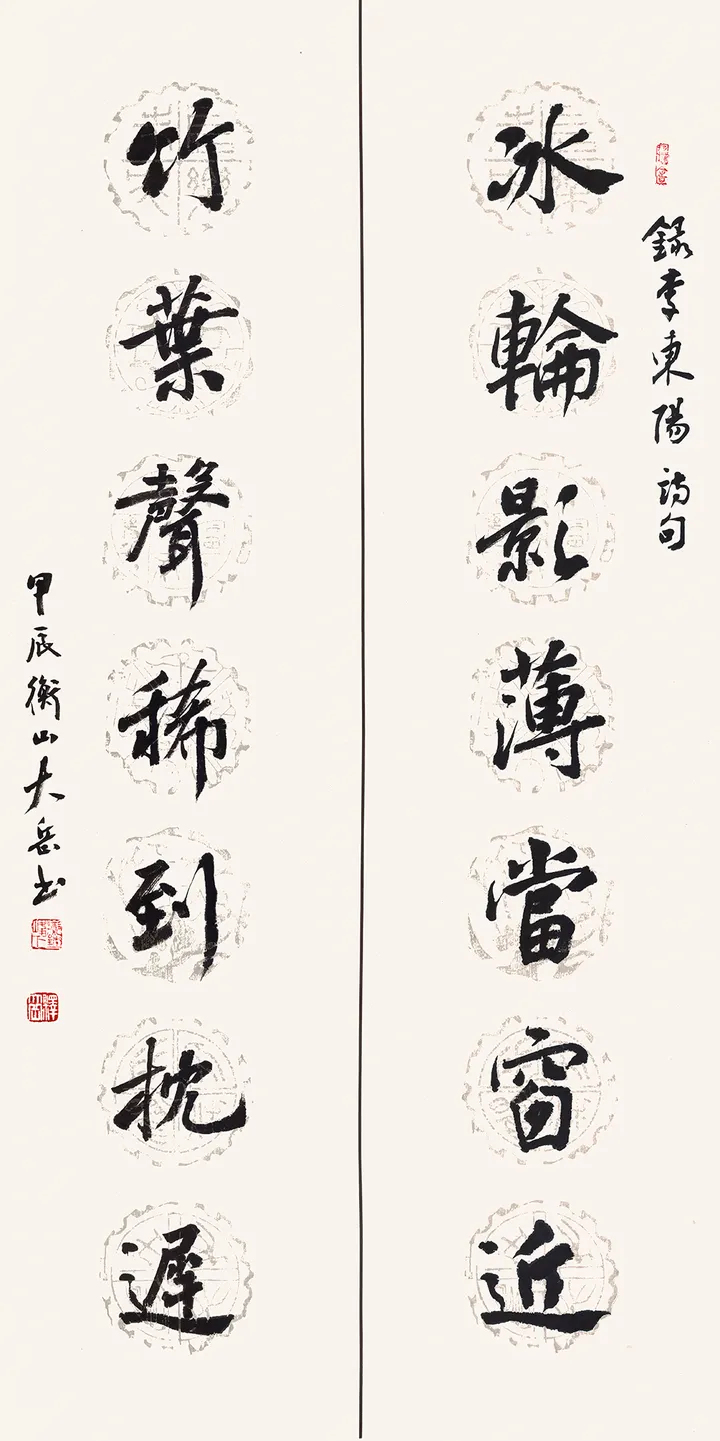 錄李東陽詩句
冰輪影薄當窗近
竹葉聲稀到枕遲
甲辰衡山大岳书